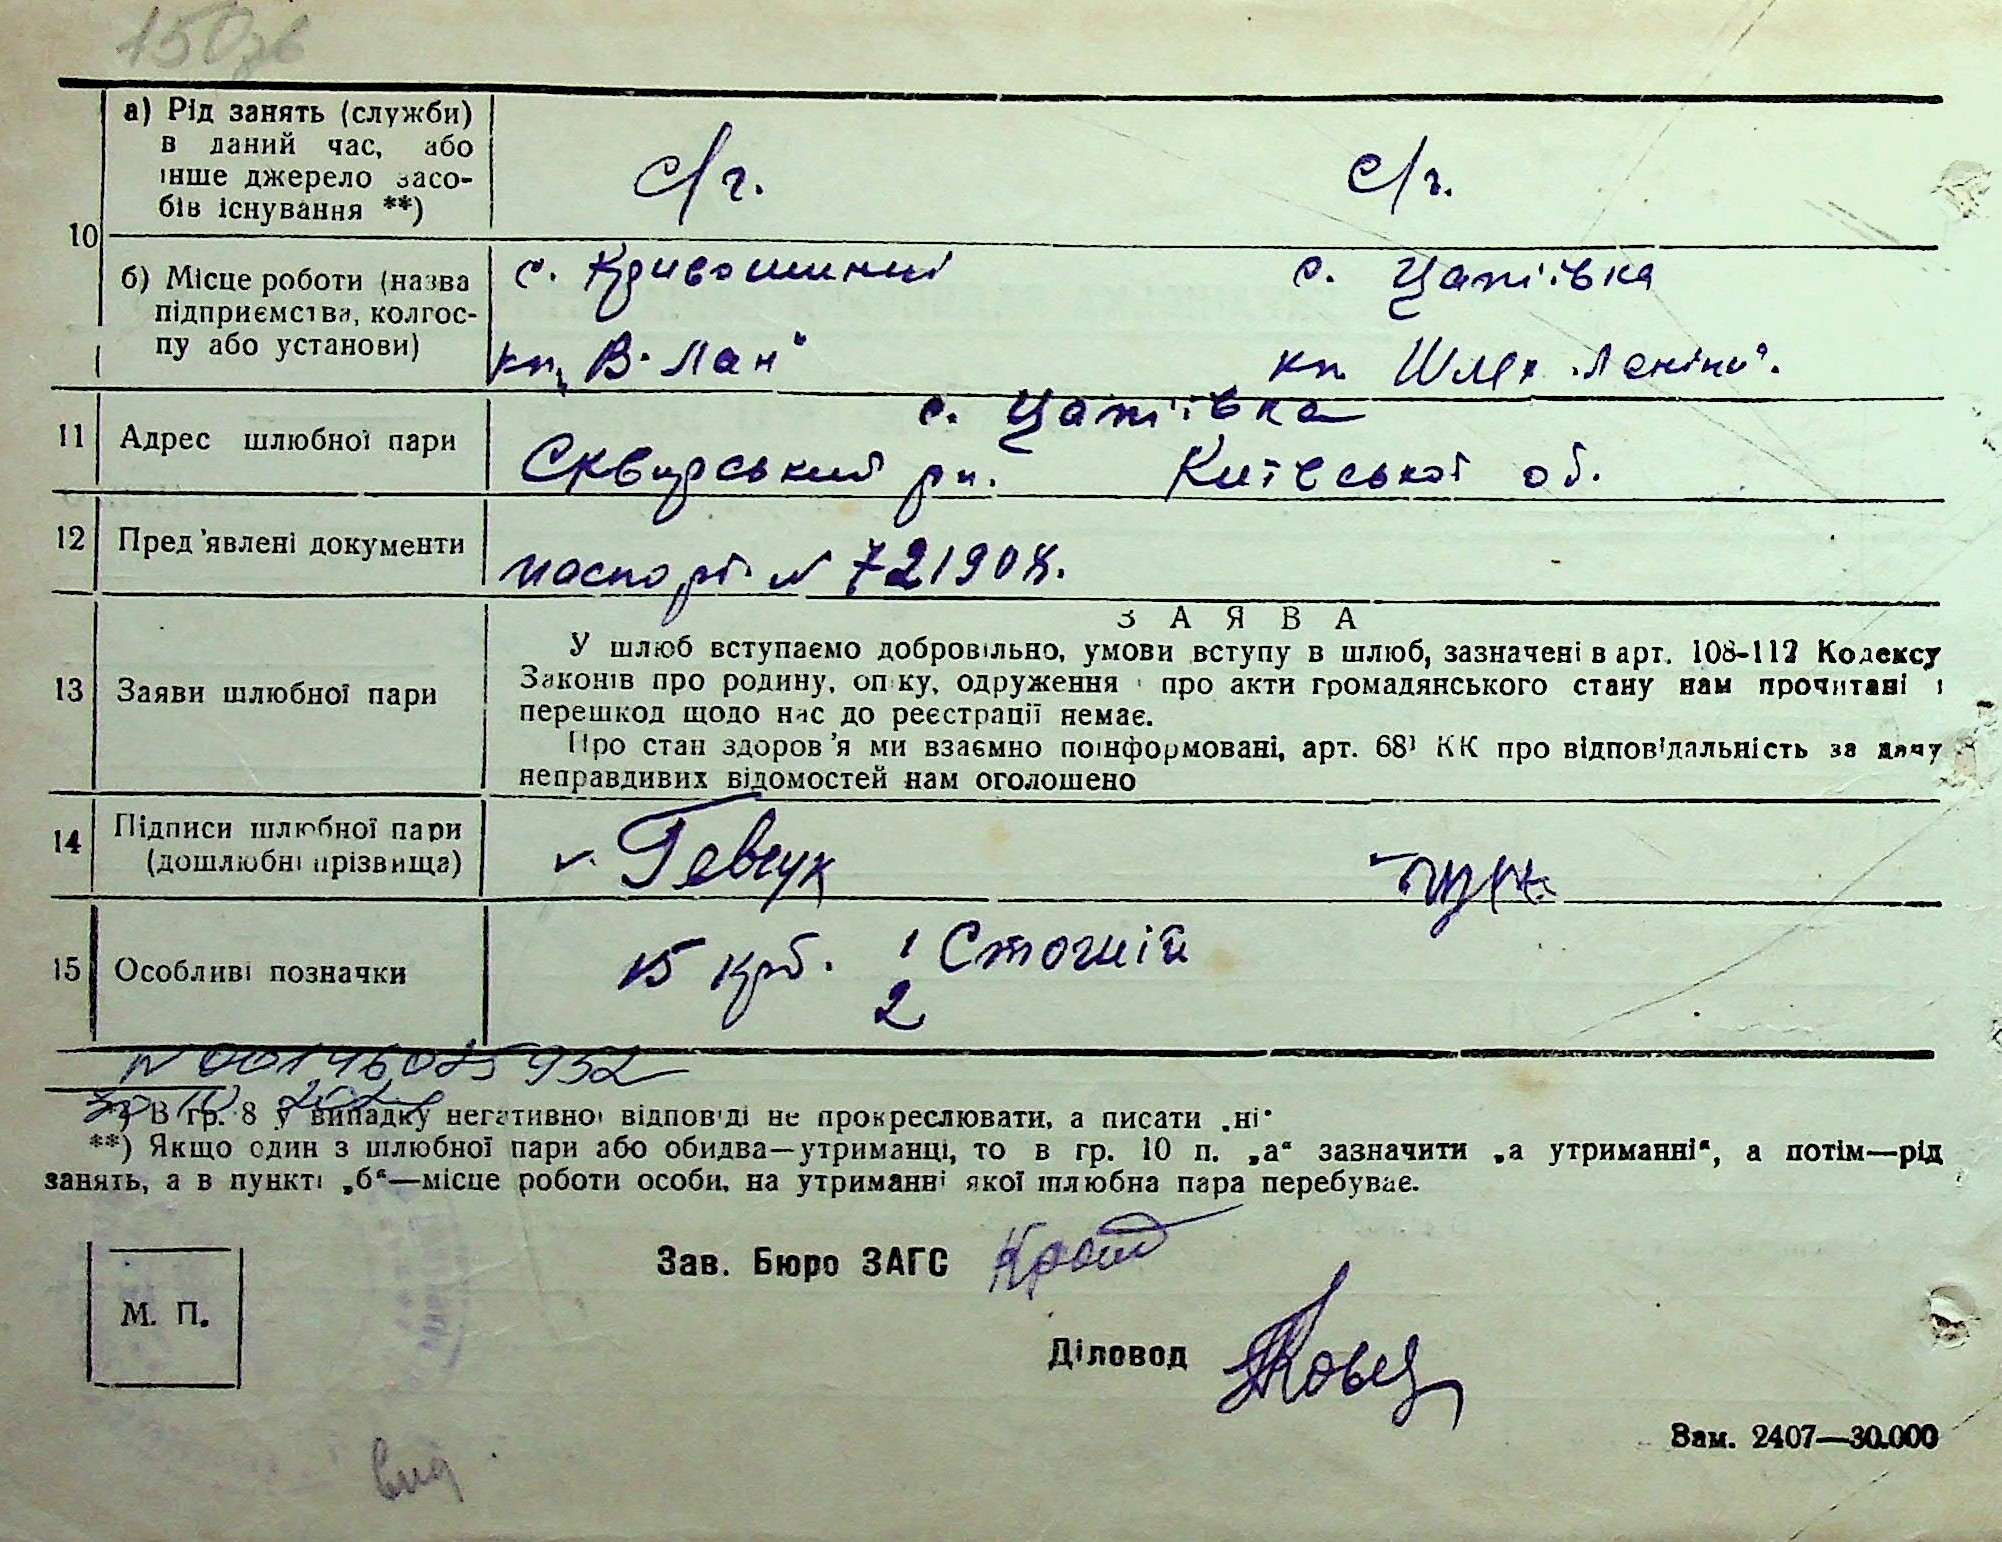 150зв
а) Рід занять (служби)
в даний час, або
інше джерело засо-
бів існування **)
с/г.
с/г.
10
б) Місце роботи (назва
підприємства, колгос-
пу або установи)
с. Кривошиїнці
кп „В. Лан"
с. Цапіївка
кп. Шлях Леніна".
11
Адрес шлюбної пари
с. Цапіївка
Сквирський рн. Київської об.
12
Пред'явлені документи
паспорт №
13
Заяви шлюбної пари
ЗАЯВА
У шлюб вступаємо добровільно, умови вступу в шлюб, зазначені в арт. 108-112 Кодексу
Законів про родину, опіку, одруження і про акти громадянського стану нам прочитані і
перешкод щодо нас до реєстрації немає.
Про стан здоров'я ми взаємно поінформовані, арт. 68¹ КК про відповідальність за дачу
неправдивих відомостей нам оголошено
14
Підписи шлюбної пари
(дошлюбні прізвища)
Гевчук
15
Особливі позначки
15 крб. 1 Стогній
2
N 00146085952
*) В гр. 8 у випадку негативної відповіді не прокреслювати, а писати „ні"
**) Якщо один з шлюбної пари або обидва—утриманці, то в гр. 10 п. „а" зазначити „а утриманні", а потім—рід
занять, а в пункті „б"—місце роботи особи, на утриманні якої шлюбна пара перебуває.
Зав. Бюро ЗАГС
М. П.
Діловод
Зам. 2407—30.000
вид